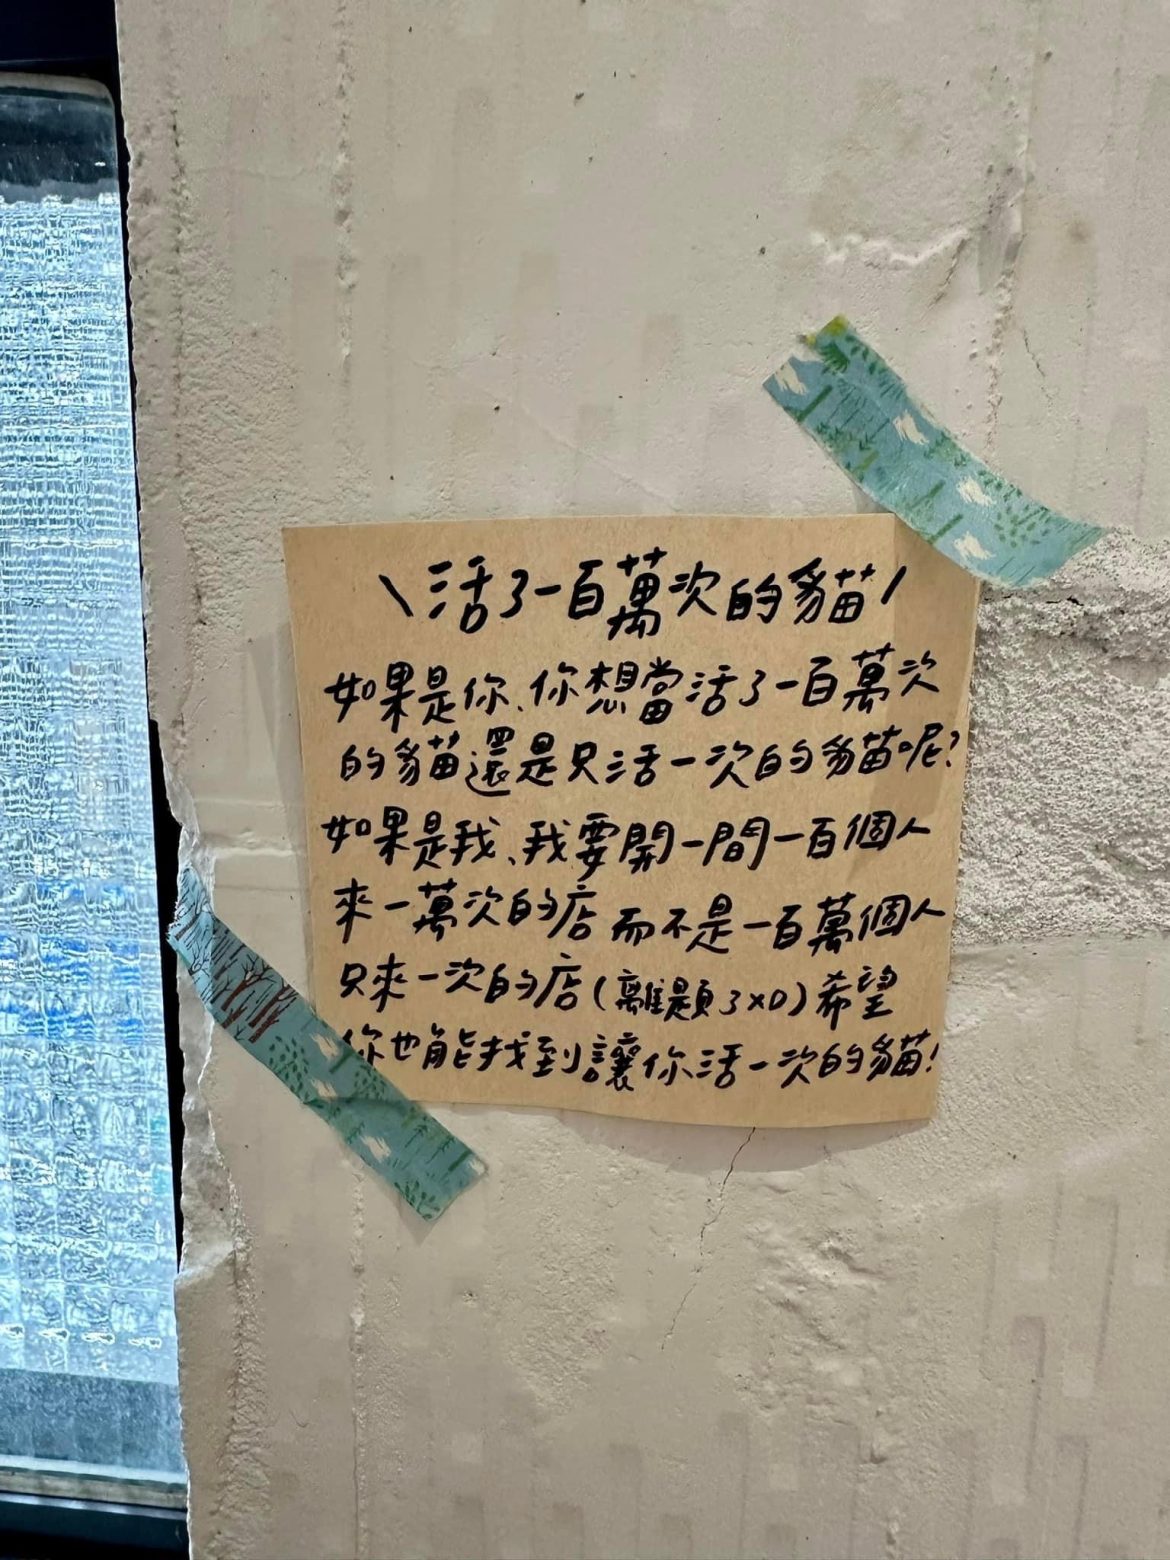 \ 活了一百萬次的貓 /
如果是你、你想當活了一百萬次
的貓還是只活一次的貓呢?
如果是我、我要開一間一百個人
來一萬次的店而不是一百萬個人
只來一次的店(離題了XD)希望
你也能找到讓你活一次的貓!